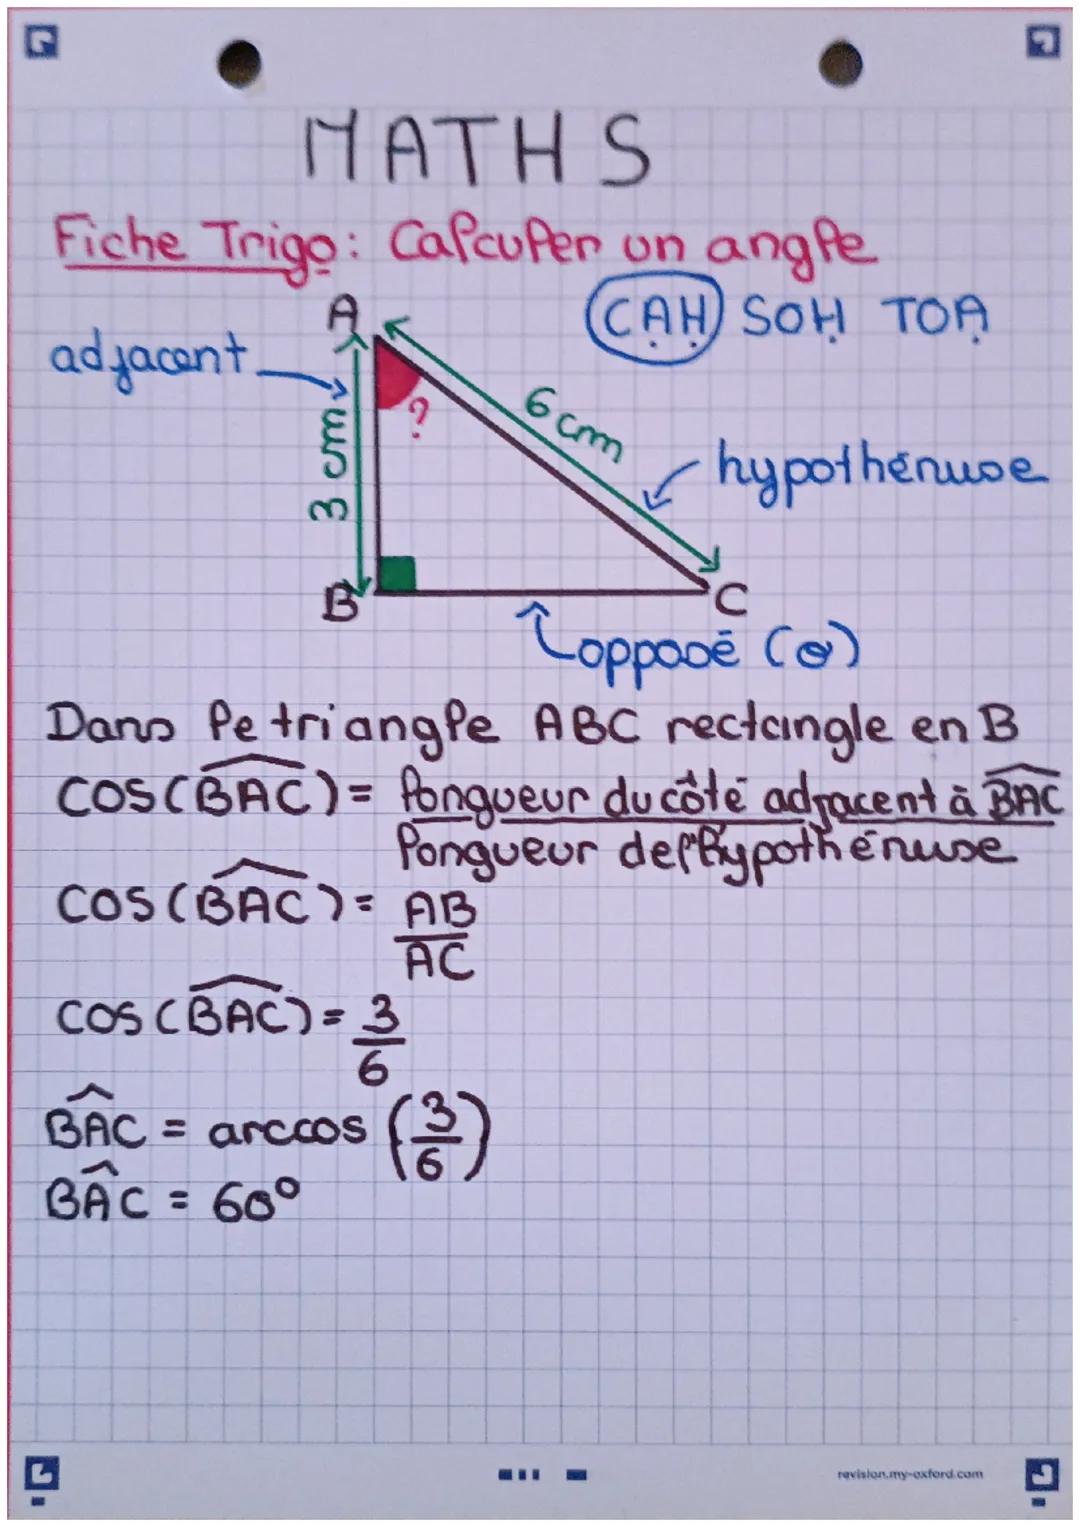 MATHS
Fiche Trigo: Calculer un angle
CAH SOH TOA
A
adjacent
?
3 cm
6 cm
hypothénuse
B
C
opposé (o)
Dans le triangle ABC rectangle en B
COS(BAC) = longueur du côté adjacent à BAC
longueur de l'hypothénuse
COS(BAC) = AB
AC
COS(BAC) = 3
6
BAC = arccos (3/6)
BAC = 60°
revision.my-oxford.com